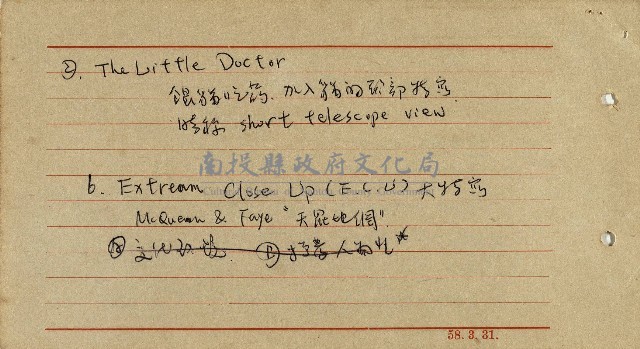 ②. The Little Doctor
餵貓吃药. 加入貓的頭部特寫.
時称 short telescope view
南投縣政府文化局
6. Extream Close Up (E.C.U) 大特寫
McQueen & Faye "天羅地網".
58.3.31.